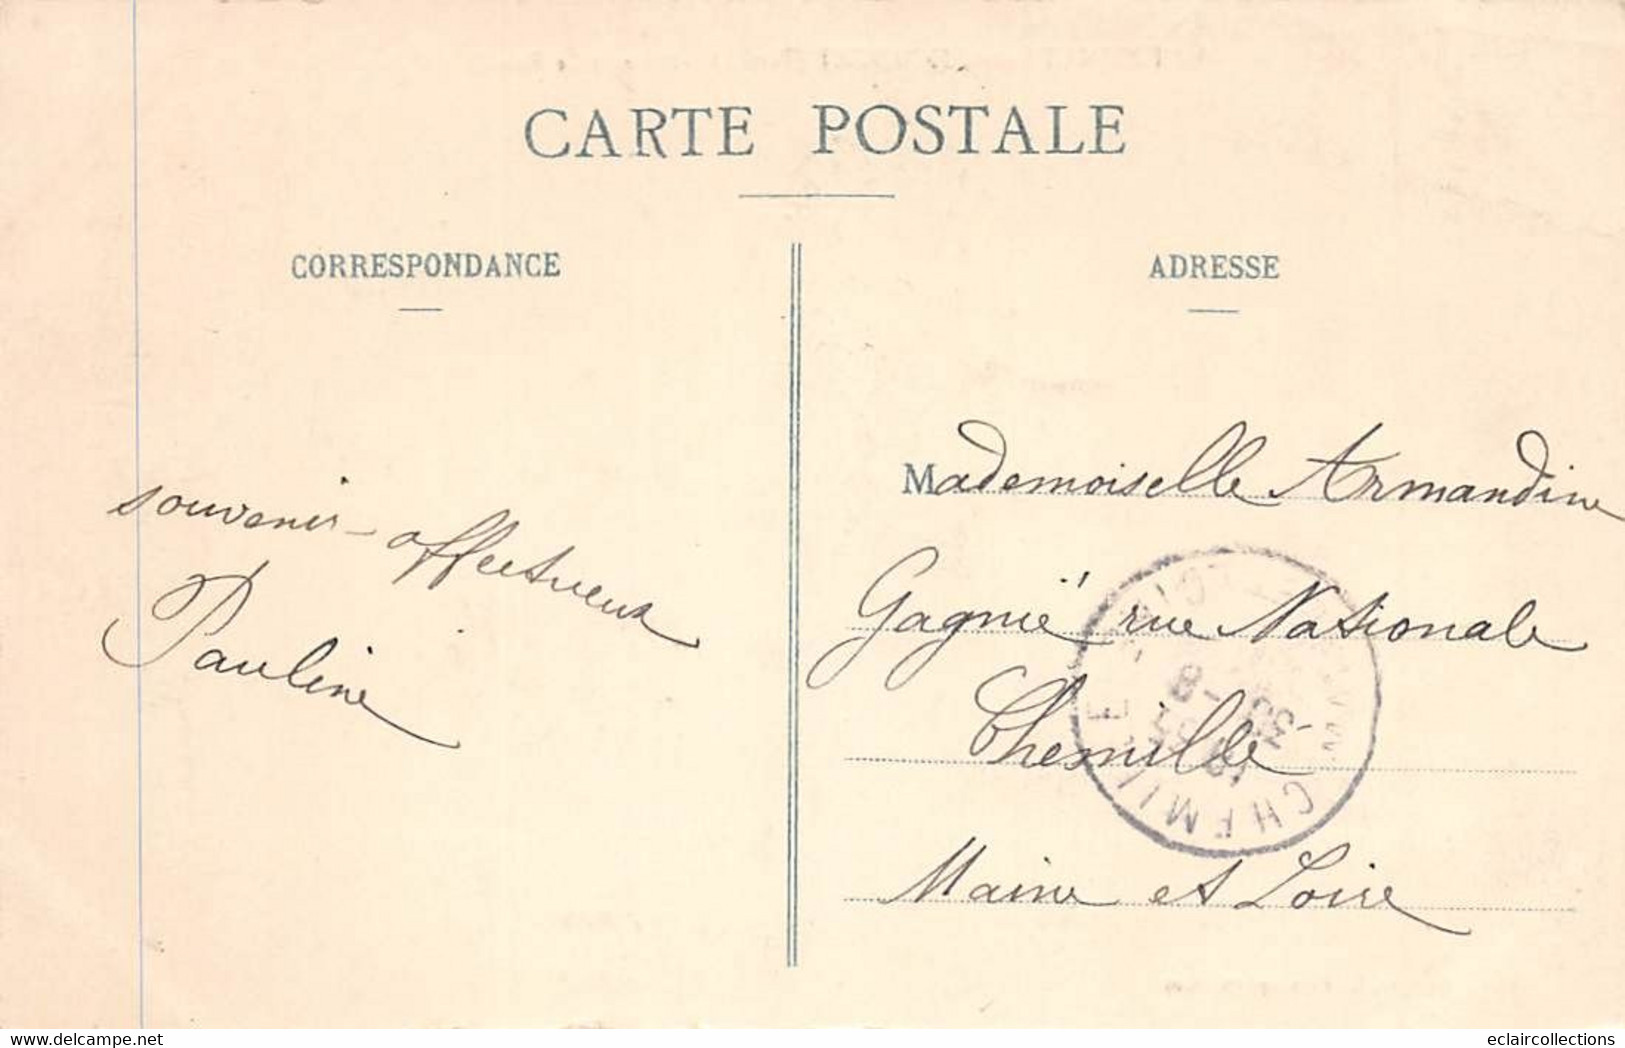 CARTE POSTALE
CORRESPONDANCE
ADRESSE
souvenir affectueux
Pauline
Mademoiselle Armandine
Gagnié rue Nationale
Chemillé
Maine et Loire
CHEMILLE
MAINE-ET-LOIRE
delcampe.net
eclaircollections